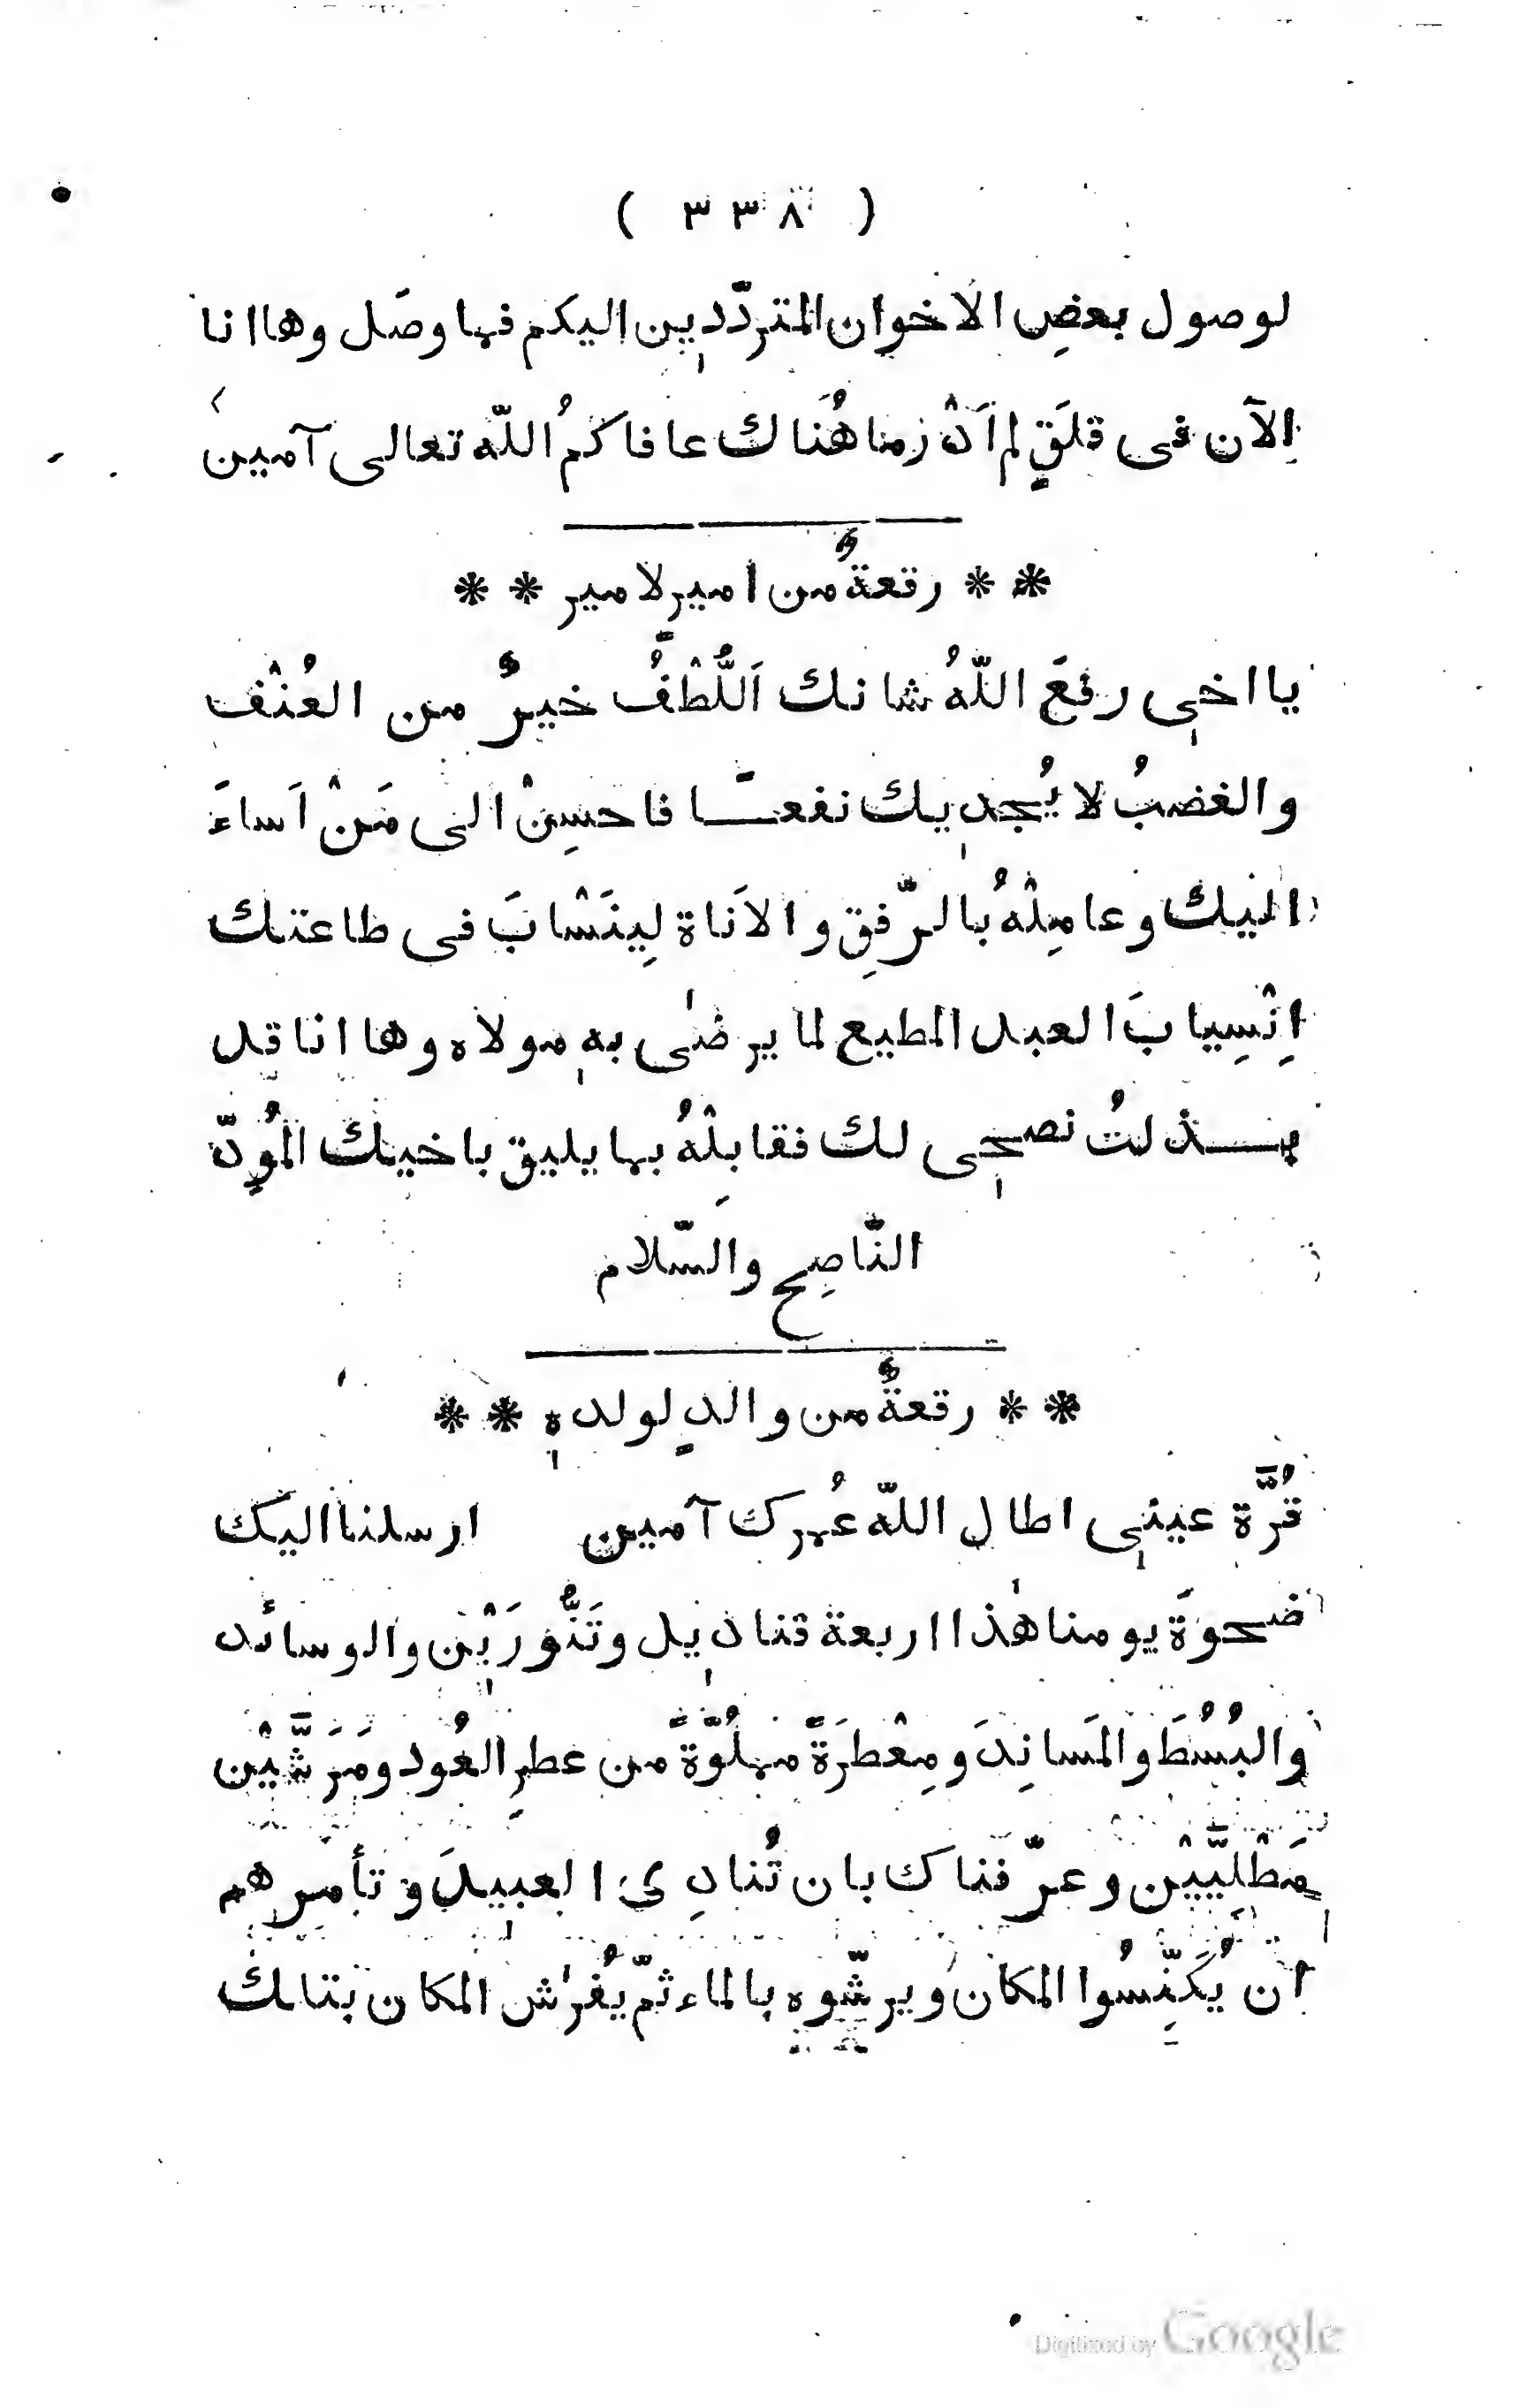 ( ٣٣٨ )
لوصول بعضِ الاخوان المتردّدين اليكم فما وصَل وها انا
الآن فى قلَقٍ لم اَدْرِ ما هُناك عافاكمُ اللّه تعالى آمين
** رقعةٌ من امير لامير **
يا اخى رفعَ اللّهُ شانك اَللُّطْفُ خيرٌ من العُنْف
والغضبُ لا يُجديك نفعًا فاحسِنْ الى مَنْ اَساءَ
اليك وعامِلْهُ بالرّفقِ والاَناة لِينَسْابَ فى طاعتك
اِنْسِيابَ العبد المطيع لما يرضٰى به مولاه وها انا قد
بذلتُ نصحى لك فقابِلْهُ بما يليق باخيك المُوِدّ
النّاصِح والسّلام
** رقعةٌ من والدٍ لولده **
قُرَّة عينى اطال اللّه عُمرك آمين ارسلنا اليك
ضحوَةَ يومنا هٰذا اربعة قناديل وتَنُّورَيْن والوسائد
والبُسُطَ والمَسانِدَ ومِعْطَرَةً مملُوَّةً من عطرِ العُود ومَرَشَّيْن
مَطْلِيَّيْن وعرّفناك بان تُنادِى العبيدَ وتأمرهم
ان يُكَنِّسُوا المكان ويرشّوه بالماء ثمّ يُفْرَش المكان بتلك
Digitized by Google